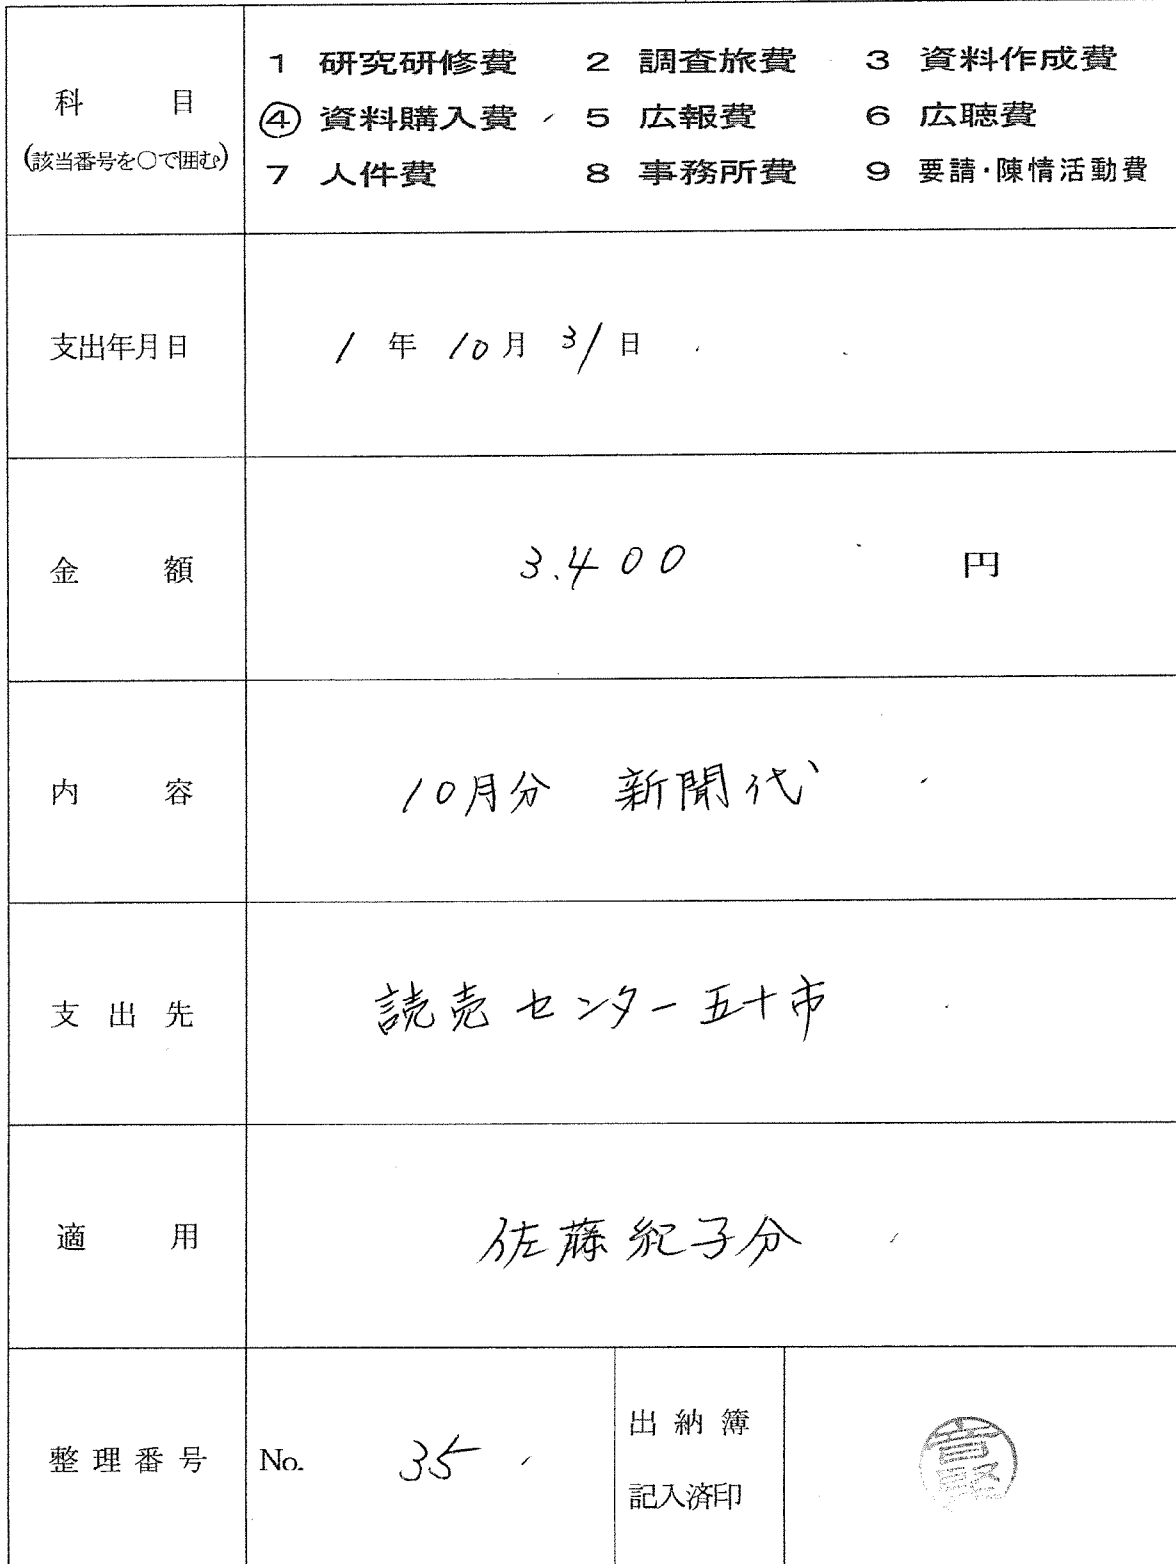 科 目
(該当番号を○で囲む)
1 研究研修費 2 調査旅費 3 資料作成費
④ 資料購入費 5 広報費 6 広聴費
7 人件費 8 事務所費 9 要請・陳情活動費
支出年月日 1 年 10 月 31 日
金 額 3.400 円
内 容 10月分 新聞代
支 出 先 読売センター五十市
適 用 佐藤紀子分
整 理 番 号 No. 35
出 納 簿
記入済印